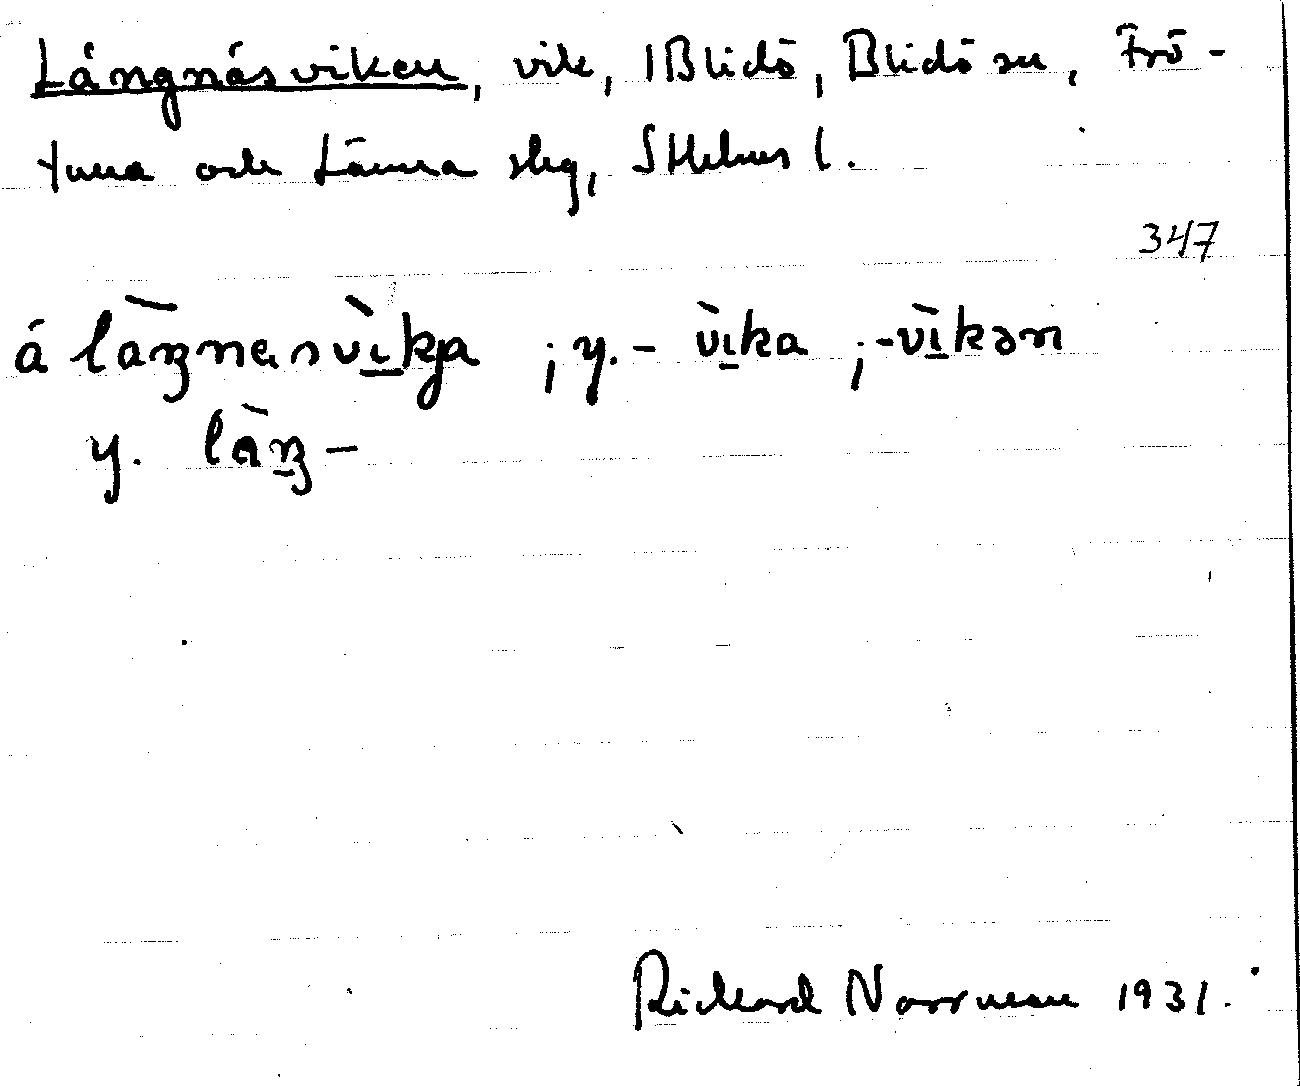 Långnäsviken, vik, 1 Blidö, Blidö sn, Frö-
tuna och Länna skg, Sthlms l.
347
á làŋnɐsvìkja ; y. - vìka ; -vìkən
y. làŋ-
Richard Norrman 1931.